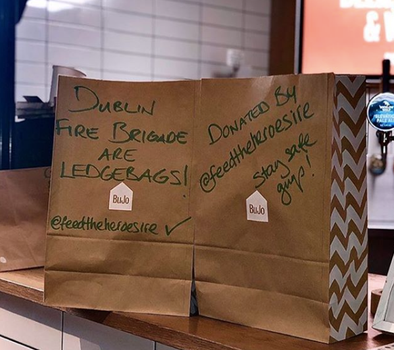 DUBLIN
FIRE BRIGADE
ARE
LEDGEBAGS!
BuJo
@feedtheheroesire ✓
DONATED BY
@feedtheheroesire
Stay safe
guys!
BuJo